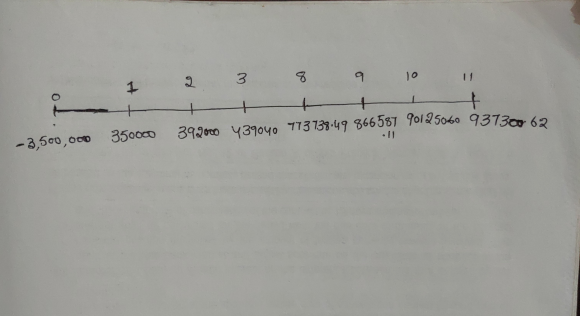 0 1 2 3 8 9 10 11
-3,500,000 350000 392000 439040 773738.49 866587 90125060 937300.62
.11